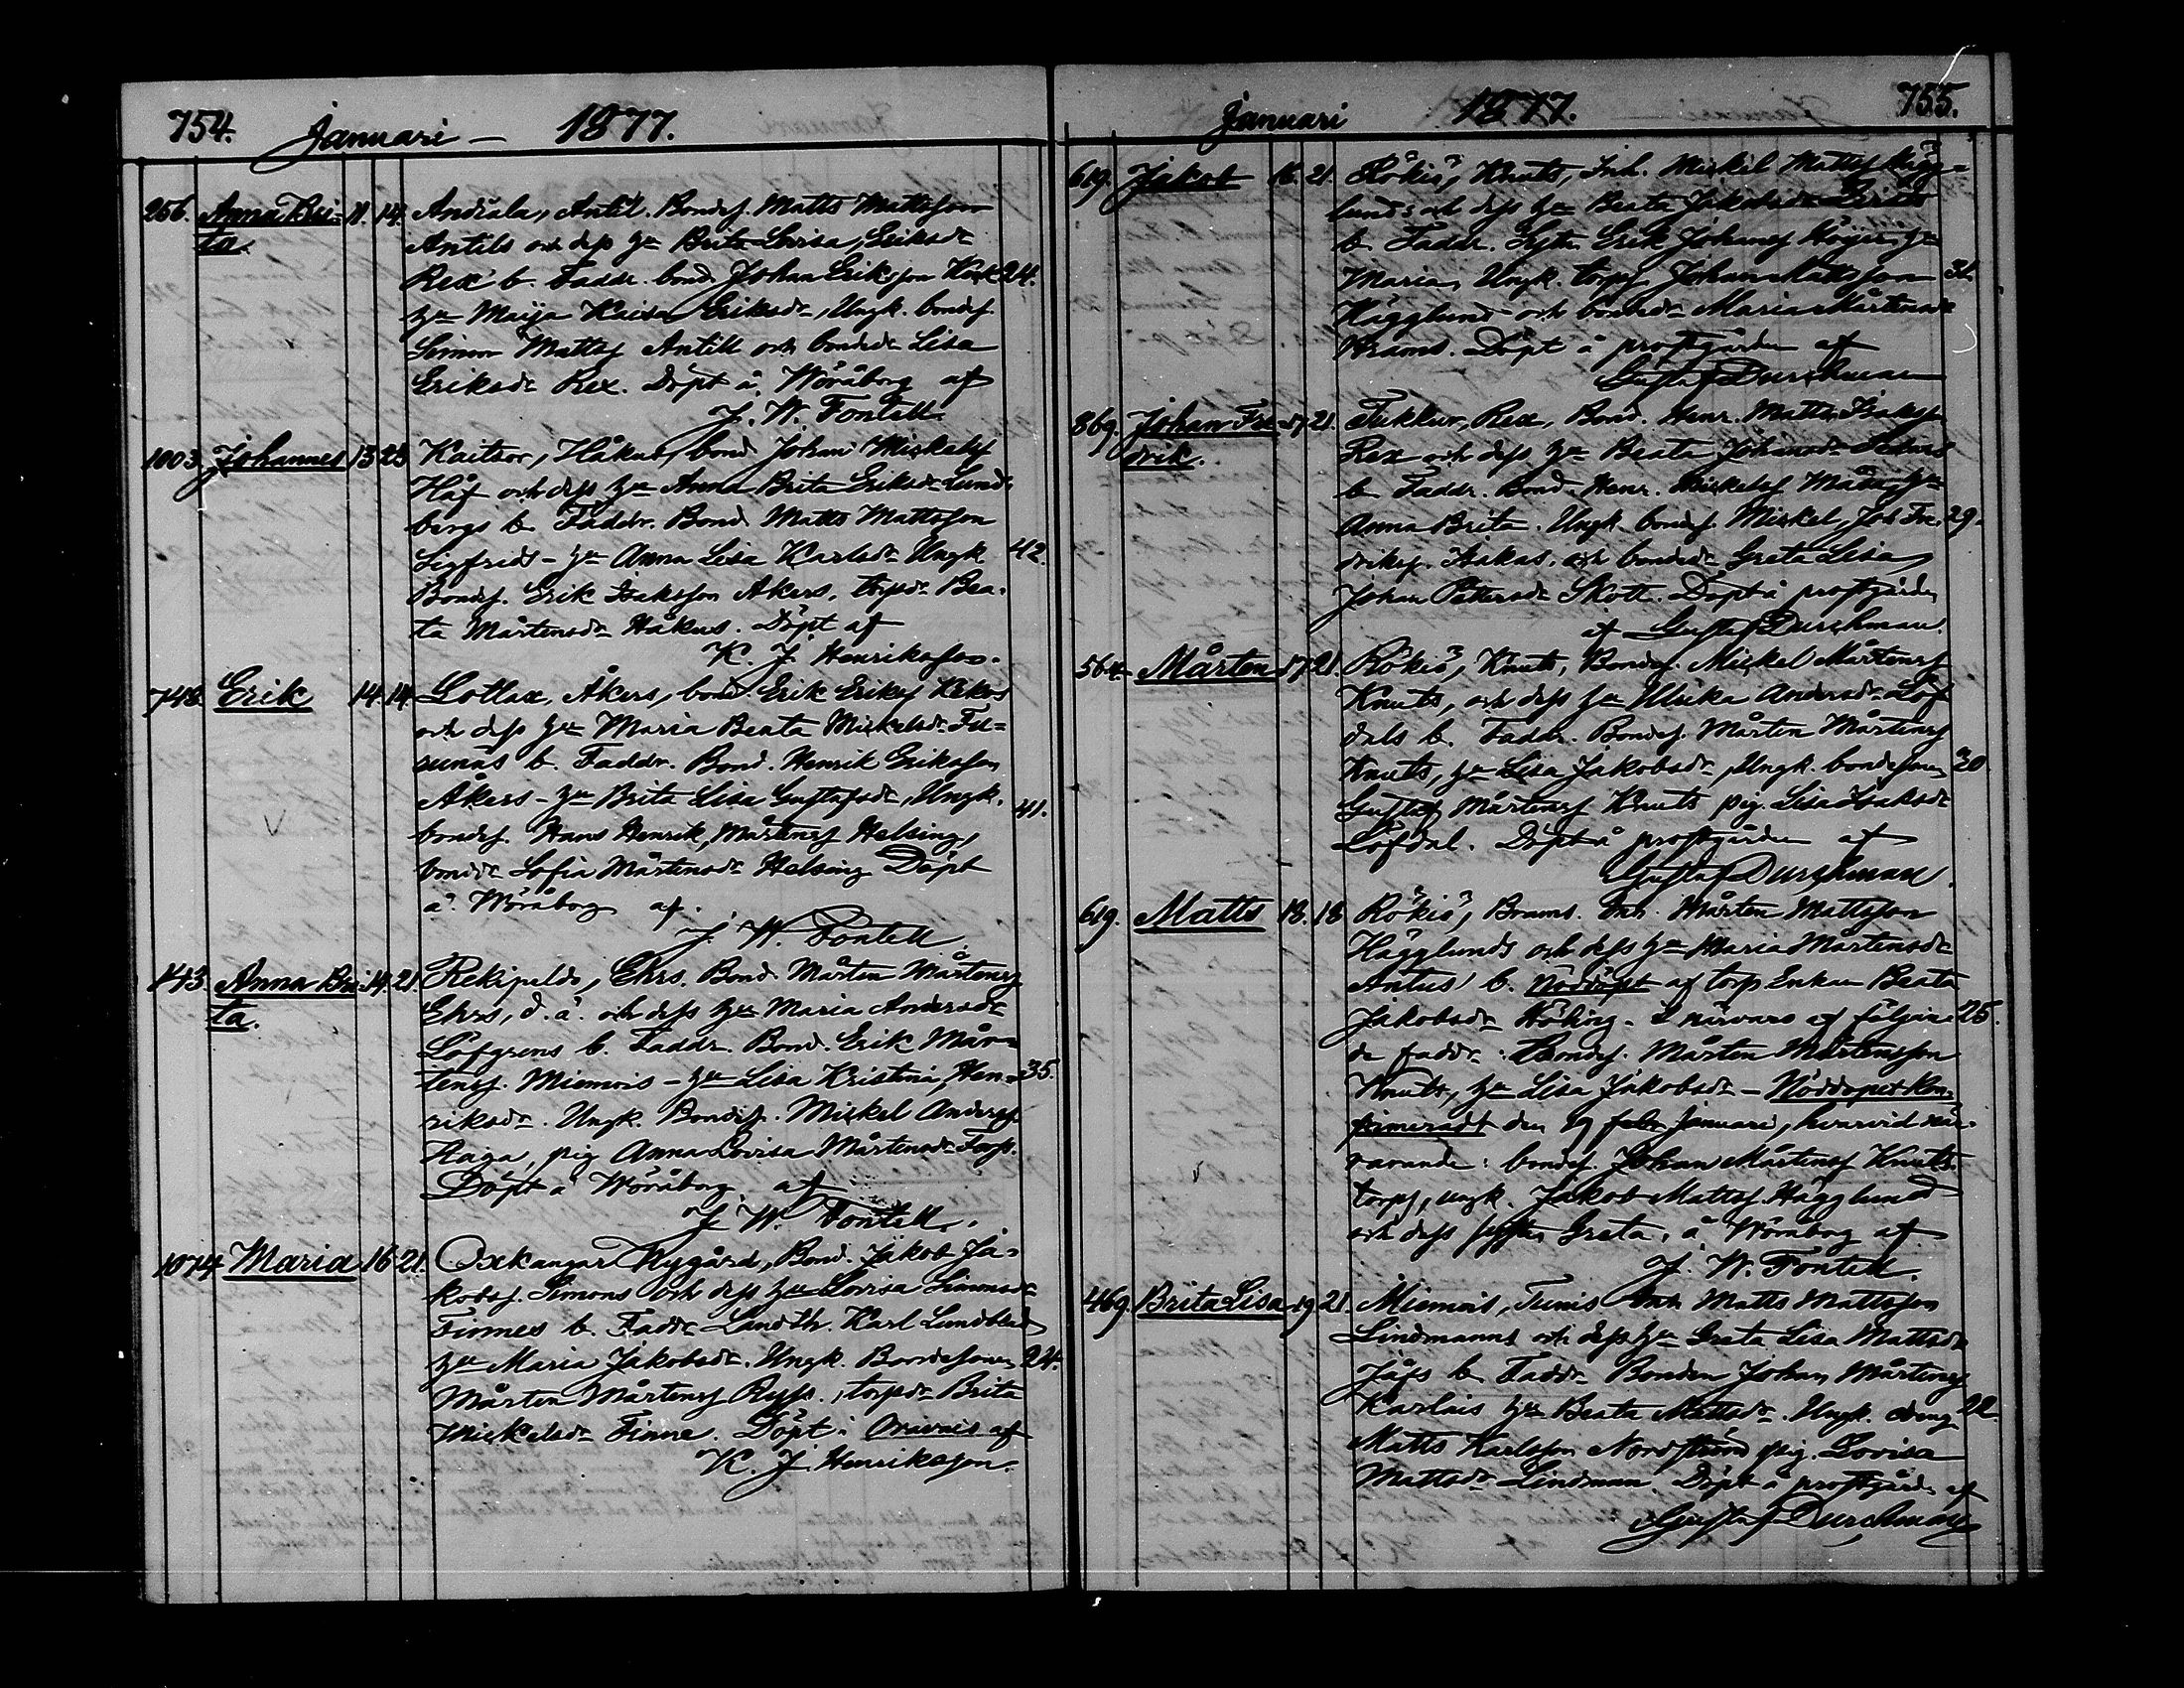 754. Januari — 1877.
256. Anna Bri= 11. 14. Andiala, Antil. Bondes. Matts Mattsson
ta. Antils och dess hu Brita Lovisa Eriksdr
Rex b. Faddr. bond. Johan Eriksson 24.
hu Maija Kaisa Eriksdr, Ungk. bondes.
Simon Mattss Antill och bondedr Lisa
Eriksdr Rex. Döpt å Wöråborg af
J. W. Fontell.
1003. Johannes 13 23 Kaitsor, Håkus, bond Johan Mickelss
Håf och dess hu Anna Brita Eriksdr Lund=
bergs b. Faddr. Bond Matts Mattsson
Sigfrids – hu Anna Lisa Karlsdr Ungk. 42.
Bondes. Erik Isaksson Akers, torpdr Bea=
ta Mårtensdr Håkus. Döpt af
K. J. Henriksson.
748. Erik 14. 14. Lotlax, Åkers, bond Erik Eriks
och dess hu Maria Beata Mickelsdr
b. Faddr. Bond. Henrik Eriksson
Åkers – hu Brita Lisa Gustafsdr, Ungk. 41.
bondes. Hans Henrik, Mårtenss Helsing,
bonddr Sofia Mårtensdr Helsing Döpt
å Wöråborg af.
J. W. Fontell.
443. Anna Bri= 14. 21. Rekipeldo, Ehrs. Bond. Mårten Mårtenss
ta. Ehrs, d. ä. och dess hu Maria Andersdr
Löfgrens b. Faddr. Bond. Erik Mår=
tenss. Miemois – hu Lisa Kristina, Hen= 35.
riksdr. Ungk. Bondes. Mickel Anderss.
Haga, pig Anna Lovisa Mårtensdr Torp.
Döpt å Wöråborg af
J. W. Fontell.
1074. Maria 16 21. Oxkangar Nygård, Bond. Jakob Ja=
kobss. Simons och dess hu Lovisa Simonsdr
Finnes b. Faddr Landth. Karl Lundblad
hu Maria Jakobsdr. Ungk. Bondesonen 24.
Mårten Mårtenss Ryss., torpdr Brita
Mickelsdr Finne. Döpt i Oravais af
K. J. Henriksson.
Januari 1877. 755.
619. Jakob 16. 21. Rökiö, Knuts, Inh. Mickel Mattss Hägg=
lunds och dess hu Beata Jakobsdr
b. Faddr. Sytn. Erik Johanss Höijer, hu
Maria, Ungk. torps Johan Mattsson 31.
Hägglund och bonddr Maria Mårtensdr
Brams. Döpt å prostgården af
Gustaf Durchman
869. Johan Fre= 17 21. Tukkur, Rex, Bond. Henr. Matts Isakss.
drik. Rex och dess hu Beata Johansdr
b. Faddr. Bond. Henr. Mickelss hu
Anna Brita. Ungk. bondes. Mickel, Joh. Fre= 29.
drikss. och bondedr Greta Lisa,
Johan Pettersdr Skott. Döpt å prostgården
af Gustaf Durchman.
564. Mårten 17 21. Rökiö, Knuts, Bondes. Mickel Mårtenss
Knuts, och dess hu Ulrika Andersdr Löf
dals b. Faddr. Bondes. Mårten Mårtenss
Knuts, hu Lisa Jakobsdr, Ungk. bondesonen 30
Gustaf Mårtenss Knuts pig. Lisa Isaksdr
Löfdal. Döpt å prostgården af
Gustaf Durchman.
619. Matts 18. 18 Rökiö, Brams. Inh. Mårten Mattsson
Hägglunds och dess hu Maria Mårtensdr
Antus b. Nöddöpt af torp. Enkan Beata
Jakobsdr Höking. I närvaro af följan= 25.
de faddr. Bondes. Mårten Mårtensson
Knuts, hu Lisa Jakobsdr – Nöddopet kon=
firmeradt den 19 febr januari, hvarvid när=
varande: bondes. Johan Mårtenss Knuts.
torps, ungk. Jakob Mattss. Hägglund
och dess syster Greta, å Wöråborg af
J. W. Fontell.
469. Brita Lisa 19 21 Miemois, Tunis Inh Matts Mattsson
Lindmanns och dess hu Greta Lisa Mattsdr
Jåfs b. Faddr Bonden Johan Mårtenss
Karlais hu Beata Mattsdr. Ungk. dreng 22.
Matts Karlsson Nordström pig. Lovisa
Mattsdr Lindman. Döpt å prostgården af
Gustaf Durchman